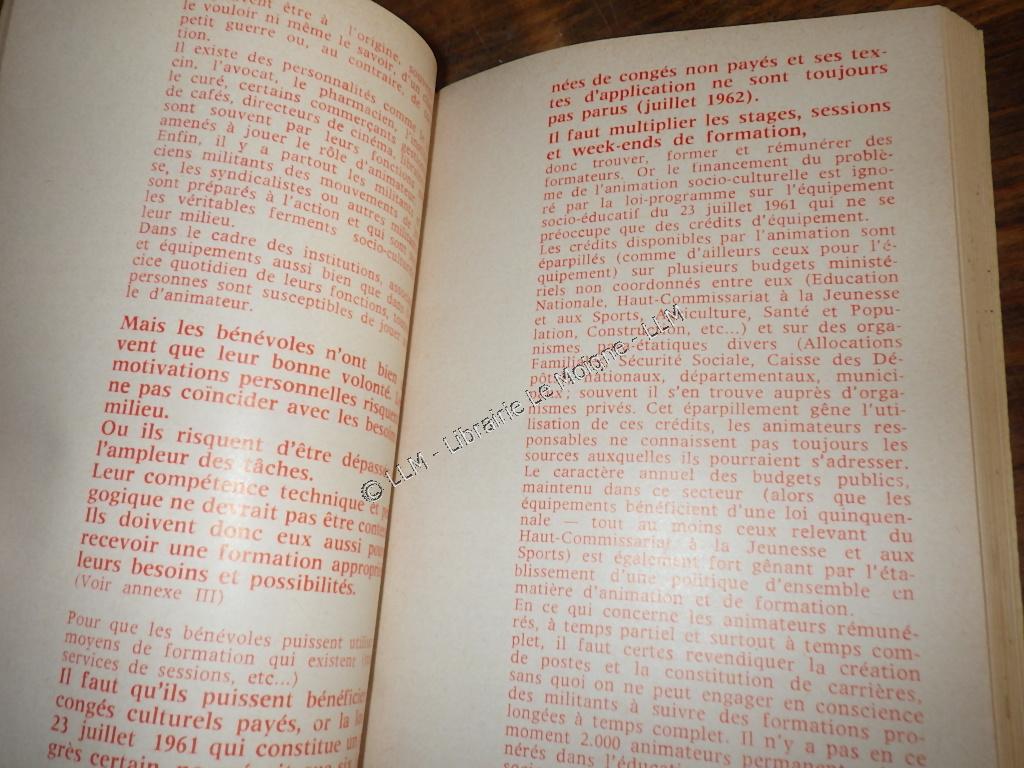 vent être à l'origine,
le vouloir ni même le savoir, d'un
petit guerre ou, au contraire, de
tion.
Il existe des personnalités comme le
cin, l'avocat, le pharmacien,
le curé, certains commerçants,
de cafés, directeurs de cinéma,
sont souvent par leurs fonctions
amenés à jouer le rôle d'animateur
Enfin, il y a partout les militants
ciens militants des mouvements de
se, les syndicalistes ou autres
sont préparés à l'action et qui sont
les véritables ferments socio-culturels
leur milieu.
Dans le cadre des institutions,
et équipements aussi bien que dans
cice quotidien de leurs fonctions,
personnes sont susceptibles de jouer
le d'animateur.
Mais les bénévoles n'ont bien
vent que leur bonne volonté.
motivations personnelles risquent
ne pas coïncider avec les besoins
milieu.
Ou ils risquent d'être dépassés
l'ampleur des tâches.
Leur compétence technique et
gogique ne devrait pas être
Ils doivent donc eux aussi
recevoir une formation appropriée
leurs besoins et possibilités.
(Voir annexe III)
Pour que les bénévoles puissent
moyens de formation qui existent
services de sessions, etc...)
Il faut qu'ils puissent bénéficier
congés culturels payés, or la
23 juillet 1961 qui constitue un
grès certain,
nées de congés non payés et ses tex-
tes d'application ne sont toujours
pas parus (juillet 1962).
Il faut multiplier les stages, sessions
et week-ends de formation,
donc trouver, former et rémunérer des
formateurs. Or le financement du problè-
me de l'animation socio-culturelle est igno-
ré par la loi-programme sur l'équipement
socio-éducatif du 23 juillet 1961 qui ne se
préoccupe que des crédits d'équipement.
Les crédits disponibles par l'animation sont
éparpillés (comme d'ailleurs ceux pour l'é-
quipement) sur plusieurs budgets ministé-
riels non coordonnés entre eux (Education
Nationale, Haut-Commissariat à la Jeunesse
et aux Sports, Agriculture, Santé et Popu-
lation, Construction, etc...) et sur des orga-
nismes para-étatiques divers (Allocations
Familiales, Sécurité Sociale, Caisse des Dé-
pôts) nationaux, départementaux, munici-
paux; souvent il s'en trouve auprès d'orga-
nismes privés. Cet éparpillement gêne l'uti-
lisation de ces crédits, les animateurs res-
ponsables ne connaissent pas toujours les
sources auxquelles ils pourraient s'adresser.
Le caractère annuel des budgets publics,
maintenu dans ce secteur (alors que les
équipements bénéficient d'une loi quinquen-
nale — tout au moins ceux relevant du
Haut-Commissariat à la Jeunesse et aux
Sports) est également fort gênant par l'éta-
blissement d'une politique d'ensemble en
matière d'animation et de formation.
En ce qui concerne les animateurs rémuné-
rés, à temps partiel et surtout à temps com-
plet, il faut certes revendiquer la création
de postes et la constitution de carrières,
sans quoi on ne peut engager en conscience
des militants à suivre des formations pro-
longées à temps complet. Il n'y a pas en ce
moment 2.000 animateurs permanents
nérés dans
© LLM - Librairie Le Moigne - LLM